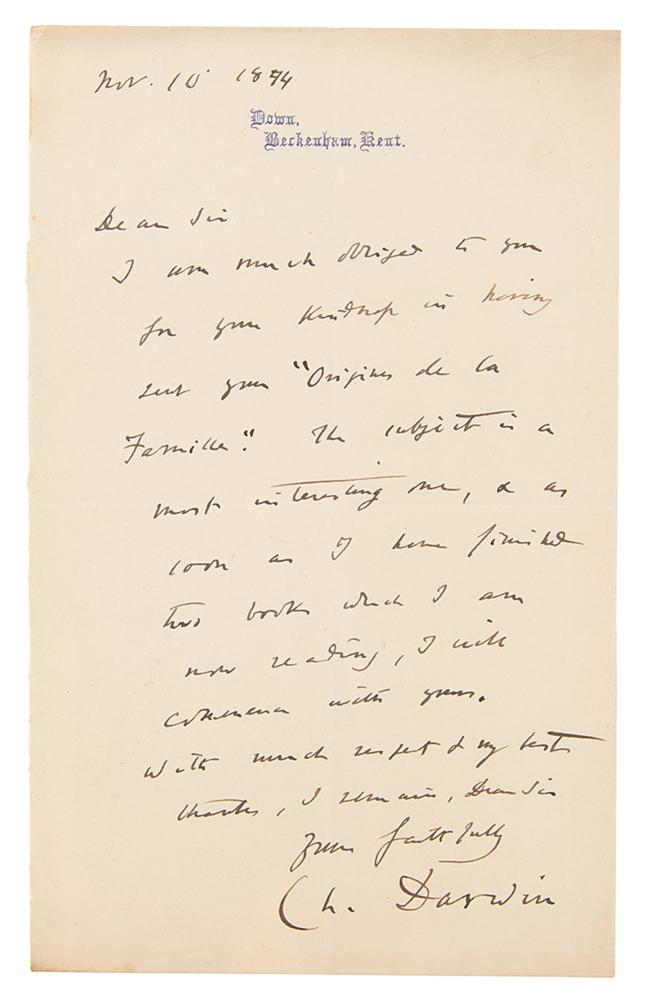 Nov. 10 1874
Down,
Beckenham, Kent.
Dear Sir
I am much obliged to you
for your kindness in having
sent your "Origines de la
Famille". The subject is a
most interesting one, & as
soon as I have finished
two books which I am
now reading, I will
commence with yours.
With much respect & my best
thanks, I remain, Dear Sir
Yours faithfully
Ch. Darwin